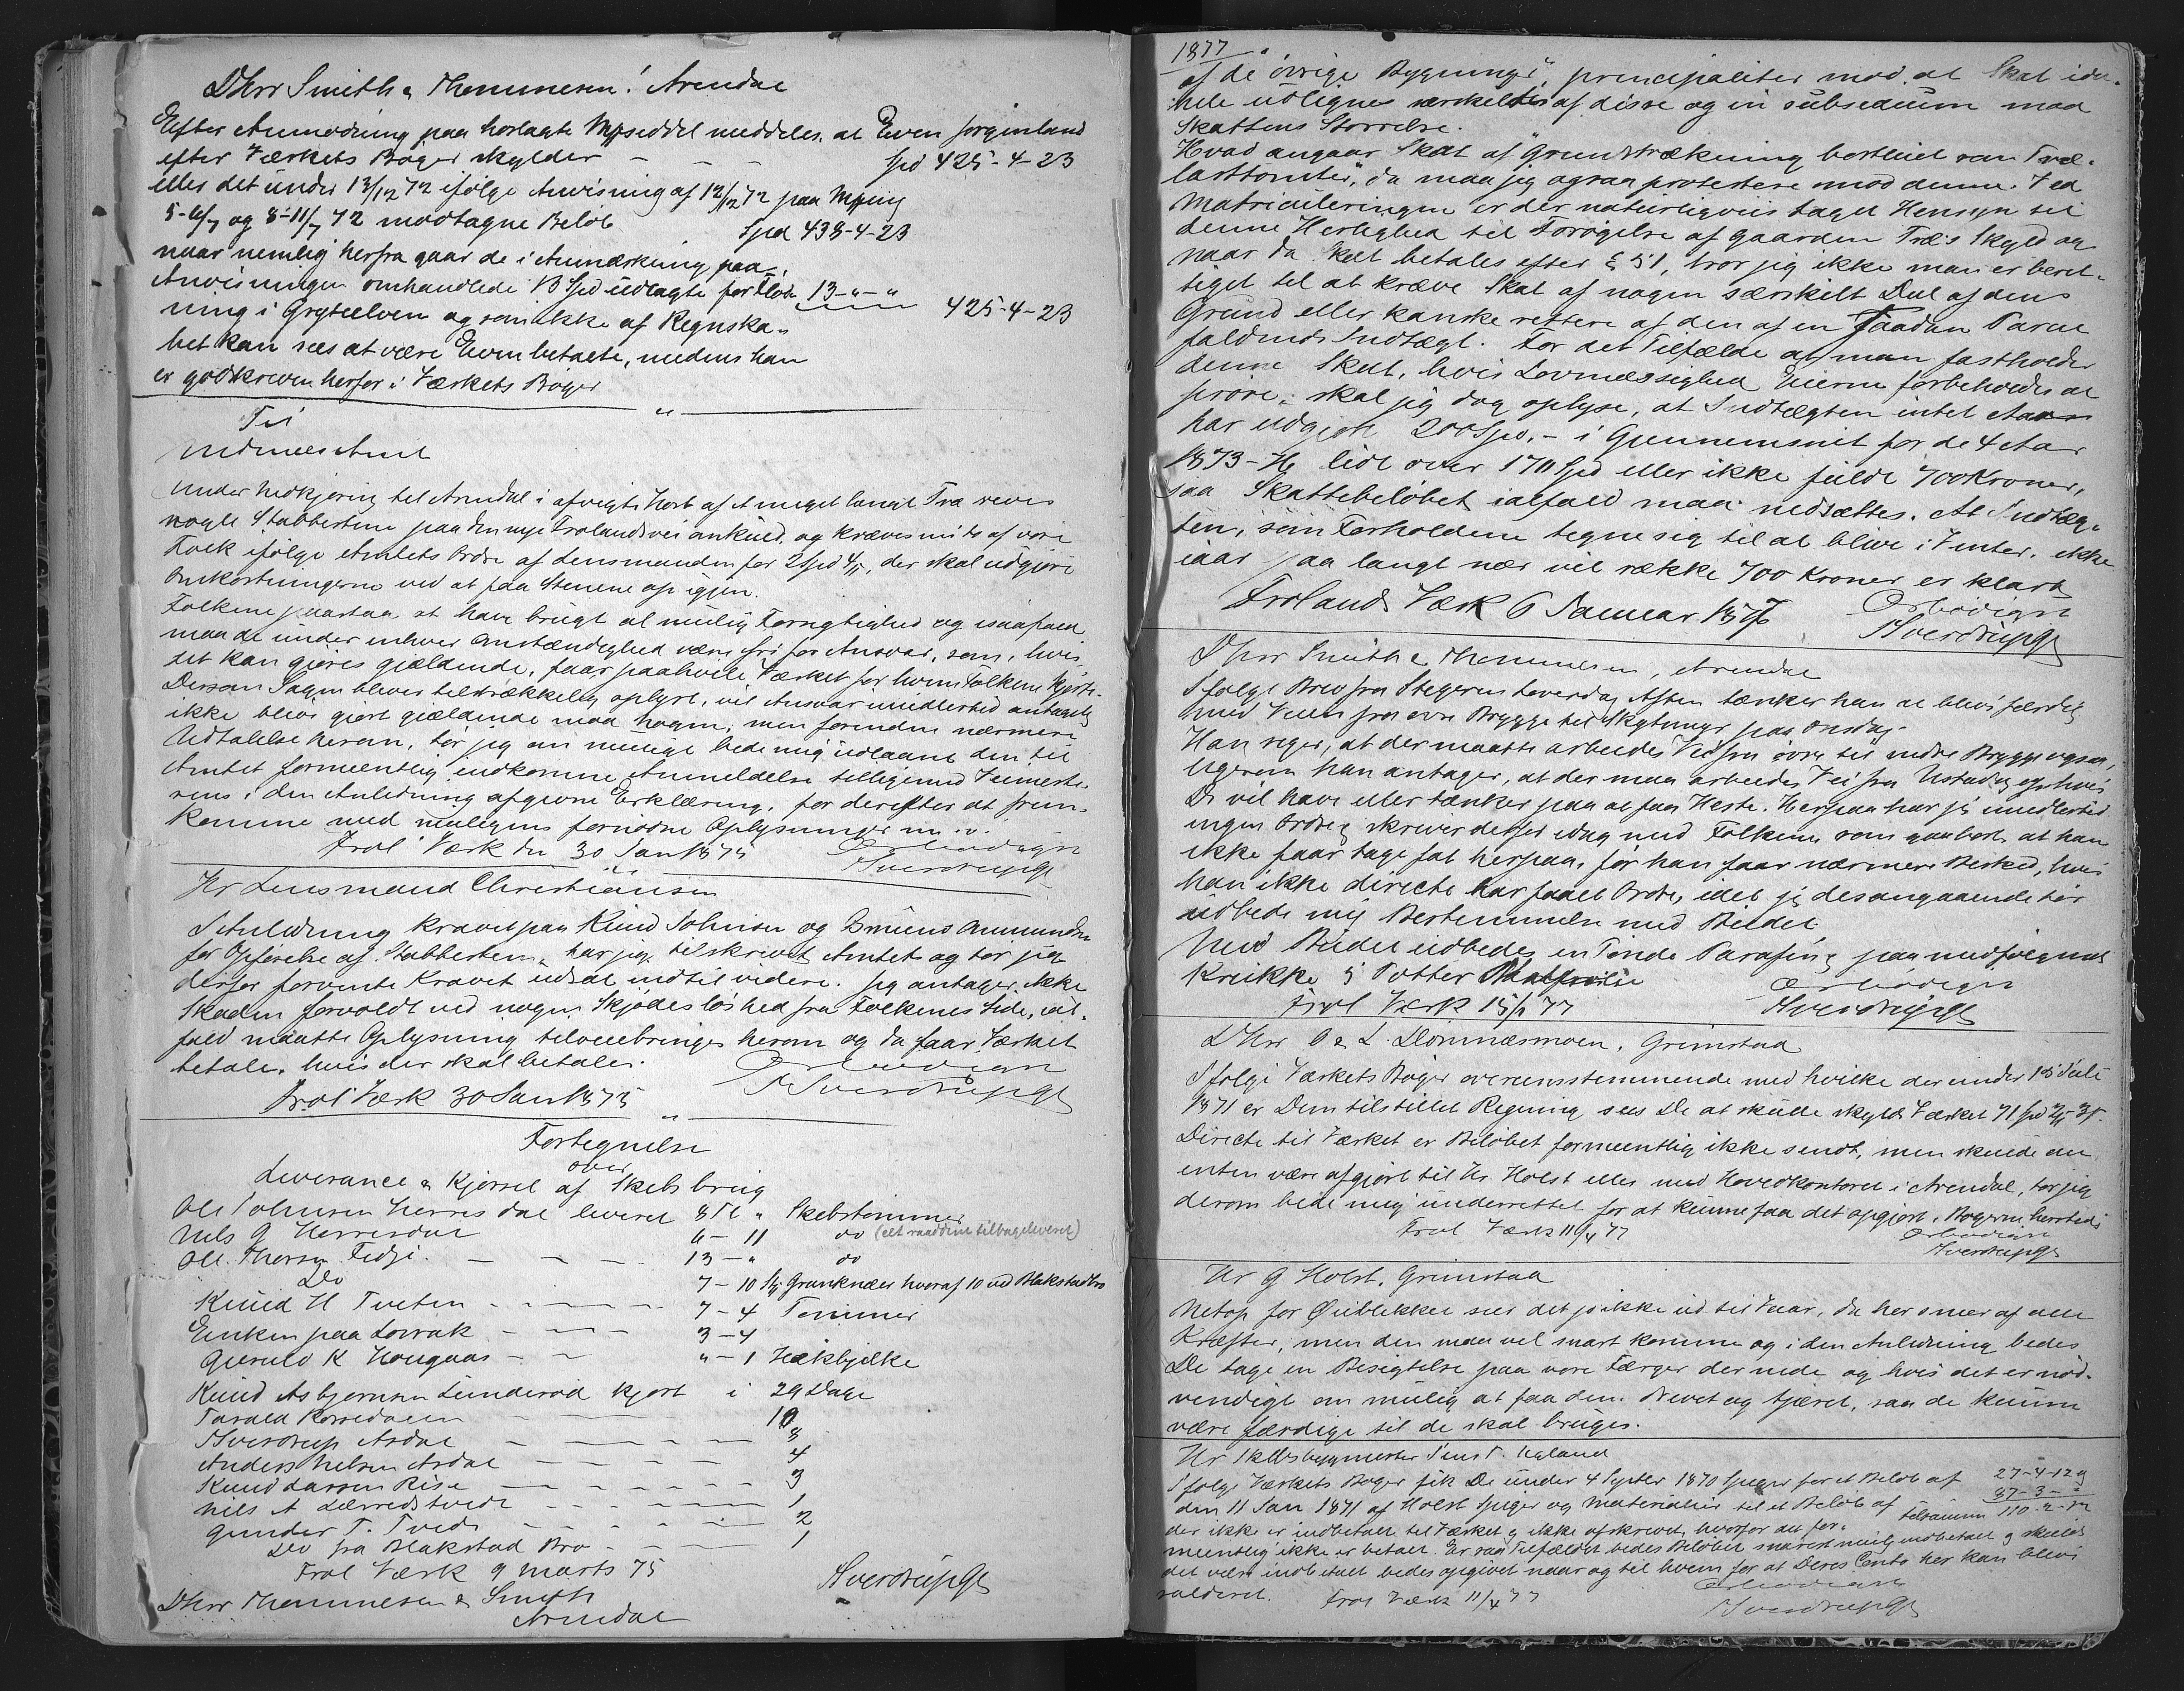 DHrr Smith & Thommesen! Arendal
Efter Anmodning paa hoslagte Mpseddel meddeles, at Even Jorginland
efter Værkets Bøger skylder - - - Spd 425-4-23
eller det under 13/12 72 ifølge Anvisning af 12/12 72 paa Mping
5-6/7 og 8-11/7 72 modtagne Beløb Spd 438-4-23
naar nemlig herfra gaar de i Anmærkning paa
Anvisningen omhandlede 13 Spd udlagte for Flød- 13-"-"
ning i Gryteelven og som ikke af Regnska- 425-4-23
bet kan sees at være Even betalte, medens han
er godskreven herfor i Værkets Bøger
"
Til
Nedenes Amt
Under Nedkjøring til Arendal i afvigte Høst af et meget langt Træ reves
nogle Stabbestene paa den nye Frolandsvei omkuld, og kræves nu to af vore
Folk ifølge Amtets Ordre af Lensmanden for 2 Spd 4/5, der skal udgjøre
Omkostningerne ved at faa Stenene op igjen.
Folkene paastaa at have brugt al mulig Forsigtighed og isaafald
maa de under enhver Omstændighed være fri for Ansvar, som, hvis
det kan gjøres gjældende, faar paahvile Værket for hvem Folkene kjørte.
Dersom Sagen bliver tilstrækkelig oplyst, vil Ansvar imidlertid antagelig
ikke blive gjort gjældende mod nogen; men forinden nærmere
Udtalelse herom, tør jeg om muligt bede mig udlaant den til
Amtet formeentlig indkomne Anmeldelse tilligemed Veimeste-
rens i den Anledning afgivne Erklæring, for derefter at frem-
komme med muligens fornødne Oplysninger m. v.
Frol Værk den 30 Jan 1875 Ærbødigst
HverdrupGt
Hr Lensmand Christiansen
I Anledning Kravet paa Knud Johnsen og Bruuns Ammundsen
for Opførelse af Stabbesten, har jeg tilskrevet Amtet og tør jeg
derfor forvente Kravet udsat indtil videre. Jeg antager ikke
Skaden forvoldt ved nogen Skjødesløshed fra Folkenes Side, ial-
fald maatte Oplysning tilveiebringes herom og da faar Værket
betale, hvis der skal betales.
Frol Værk 30 Jan 1875 Ærbødigst
Sverdrup Gt
"
Fortegnelse
over
Leverance & Kjørsel af Skibsbrug
Ole Johnsen Herresdal leveret 8 Tl " Skibstømmer
Nils G Herresdal 6 - 11 do (et raaddent tilbageleveret)
Ole Thorsen Fedje. - - - 13 - " do
Do 7 - 10 St Granknæer hvoraf 10 ved Blakstad bro
Knud H Tveten - - - - 7 - 4 Tømmer
Enken paa Lovrak - - - 3 - 4
Gjeruld K Hougaas - - " - 1 Hækbjelke
Knud Asbjørnsen Lunderød kjørt i 29 Dage
Tarald Korsedalen - 10
Sverdrup Asdal - - - - 8
Anders Nelsen Asdal - - - - 4
Knud Larsen Rise - - - - - 3
Nils A Lærredstvedt - - - - 1
Gunder T. Tveds - - - - 2
Do fra Blakstad Bro - - - 1
Frol Værk 9 Marts 75
Sverdrup Gt
DHrr Thommesen & Smith
Arendal
1877
af de øvrige Bygninger", principaliter mod at Skat ida-
hele udlignes særskeltes af disse og in subsidium mod
Skattens Størrelse.
Hvad angaar Skat af "Grundstrækning bortleiet som Træ-
lasttomter", da maa jeg ogsaa protestere mod denne. Ved
Matriculeringen er der naturligviis taget Hensyn til
denne Herlighed til Forøgelse af Gaarden Træs Skyld og
naar da Skat betales efter § 51, tror jeg ikke man er beret-
tiget til at kræve Skat af nogen særskilt Del af dens
Grund eller kanske rettere af den af en saadan Parcel
faldende Indtægt. For det Tilfælde at man fastholder
denne Skat, hvis Lovmæssighed Eierne forbeholdes at
prøve, skal jeg dog oplyse, at Indtægten intet Aar
har udgjort 200 Spd. - i Gjennemsnit for de 4 Aar
1873-76 lidt over 170 Spd eller ikke fulde 700 Kroner,
saa Skattebeløbet ialfald maa nedsættes. At Indtæg-
ten, som Forholdene tegne sig til at blive i Vinter, ikke
iaar paa langt nær vil række 700 Kroner er klart
Frolands Værk 6 Januar 1877 Ærbødigst
Sverdrup Gt
DHrr Smith & Thommesen, Arendal
Ifølge Brev fra Stegeren Løverdag Aften tænker han at blive færdig
med Veien fra øvre Brygge til Skytunge paa Onsdag.
Han siger, at der maatte arbeides Vei fra øvre til nedre Brygge ogsaa,
ligesom han antager, at der maa arbeides Vei fra Ustad og op hvis
De vil have eller tænker paa at faa Heste. Herpaa har jeg imidlertid
ingen Ordre & skriver derfor idag med Folkene, som gaa bort, at han
ikke faar tage fat herpaa, før han faar nærmere Besked, hvis
han ikke directe har faaet Ordre, idet jeg desangaaende tør
udbede mig Bestemmelse med Budet.
Med Budet udbedes en Tønde Parafin & paa medfølgende
Krukke 5 Potter
Frol Værk 15/1 77 Ærbødigst
Sverdrup Gt
DHrr O & L. Dømmesmoen, Grimstad
Ifølge Værkets Bøger overeensstemmende med hvilke der under 15 Juli
1871 er Dem tilstillet Regning sees De at skulle skylde Værket 71 Spd
Directe til Værket er Beløbet formeentlig ikke sendt, men skulde det
enten være afgjort til Hr Holst eller med Hovedkontoret i Arendal, tør jeg
derom bede mig underrettet for at kunne faa det opgjort i Bøgerne hersteds
Frol Værk 11/4 77 Ærbødigst
Sverdrup Gt
Hr G Holst, Grimstad
Netop for Øieblikket seer det jo ikke ud til Vaar, da her sneer af alle
Kræfter, men den maa vel snart komme og i den Anledning bedes
De tage en Besigtelse paa vore Færger der nede og hvis det er nød-
vendigt om mulig at faa dem drevet og tjæret, saa de kunne
være færdige til de skal bruges.
Hr Skibsbygmester Jens T. Ugland
Ifølge Værkets Bøger fik De under 4 Septbr 1870 Spiger for et Beløb af 27-4-12
den 11 Jan 1871 af Holst Spiger og Materialier til et Beløb af 87-3-"
tilsammen 110-2-12
der ikke er indbetalt til Værket & ikke afskrevet, hvorfor det for-
meentlig ikke er betalt. Er saa Tilfældet bedes Beløbet snarest mulig indbetalt & skulde
det være indbetalt bedes opgivet naar og til hvem for at Deres Conto her kan blive
salderet. Frol Værk 11/4 77 Ærbødigst
Sverdrup Gt